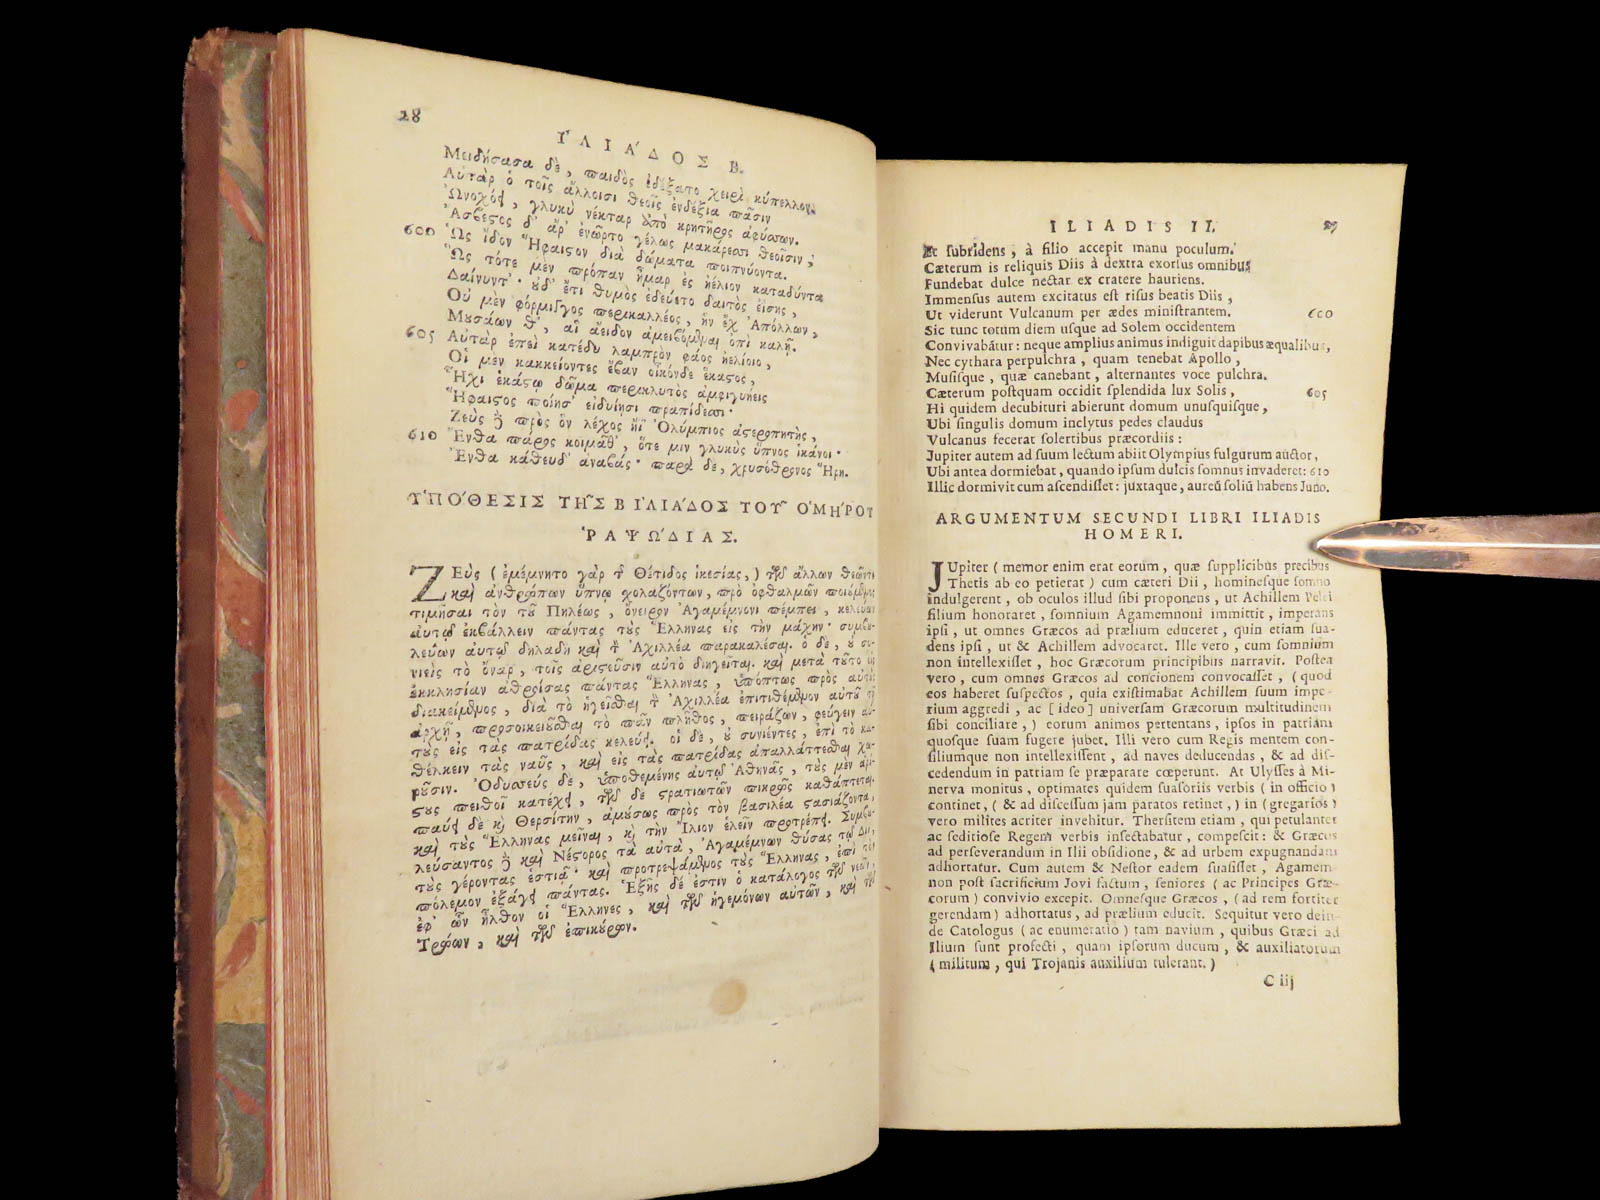 28
ἸΛΙΆΔΟΣ Β.
Μειδήσασα δὲ, παιδὸς ἐδέξατο χειρὶ κύπελλον.
Αὐτὰρ ὁ τοῖς ἄλλοισι θεοῖς ἐνδέξια πᾶσιν
Ὠνοχόει, γλυκὺ νέκταρ ἀπὸ κρητῆρος ἀφύσσων.
Ἄσβεστος δ' ἄρ' ἐνῶρτο γέλως μακάρεσσι θεοῖσιν;
600 Ὡς ἴδον Ἥφαιστον διὰ δώματα ποιπνύοντα.
Ὣς τότε μὲν πρόπαν ἦμαρ ἐς ἠέλιον καταδύντα
Δαίνυντ'· οὐδ' ἔτι θυμὸς ἐδεύετο δαιτὸς ἐΐσης,
Οὐ μὲν φόρμιγγος περικαλλέος, ἣν ἔχ' Ἀπόλλων,
Μουσάων θ', αἳ ἄειδον ἀμειβόμεναι ὀπὶ καλῇ.
605 Αὐτὰρ ἐπεὶ κατέδυ λαμπρὸν φάος ἠελίοιο,
Οἱ μὲν κακκείοντες ἔβαν οἶκόνδε ἕκαστος,
Ἧχι ἑκάστῳ δῶμα περικλυτὸς ἀμφιγυήεις
Ἥφαιστος ποίησ' εἰδυίησι πραπίδεσσι·
Ζεὺς δὲ πρὸς ὃν λέχος ἤϊ' Ὀλύμπιος ἀστεροπητὴς,
610 Ἔνθα πάρος κοιμᾶθ', ὅτε μιν γλυκὺς ὕπνος ἱκάνοι·
Ἔνθα κάθευδ' ἀναβάς· παρὰ δὲ, χρυσόθρονος Ἥρη.
ὙΠΌΘΕΣΙΣ ΤΗ͂Σ Β ἸΛΙΆΔΟΣ ΤΟΥ͂ ὉΜΉΡΟΥ
ῬΑΨΩΔΊΑΣ.
ΖΕὺς (ἐμέμνητο γὰρ τ͂ Θέτιδος ἱκεσίας,) τῶν ἄλλων θεῶν τε
καὶ ἀνθρώπων ὕπνῳ χολαζόντων, πρὸ ὀφθαλμῶν ποιούμενος
τιμῆσαι τὸν τοῦ Πηλέως, ὄνειρον Ἀγαμέμνονι πέμπει, κελεύων
αὐτῷ ἐκβάλλειν πάντας τοὺς Ἕλληνας εἰς τὴν μάχην· συμβου-
λεύων αὐτῷ δηλαδὴ καὶ τ Ἀχιλλέα παρακαλέσαι. ὁ δὲ, οὐ συ-
νιεὶς τὸ ὄναρ, τοῖς ἀριστεῦσιν αὐτὸ διηγεῖται. καὶ μετὰ τοῦτο εἰς
ἐκκλησίαν ἀθροίσας πάντας Ἕλληνας, ὑπόπτως πρὸς αὐτοὺς
διακείμενος, διὰ τὸ ἡγεῖσθαι τ Ἀχιλλέα ἐπιτιθέμενον αὐτοῦ τῇ
ἀρχῇ, προσοικειοῦσθαι τὸ πᾶν πλῆθος, πειράζων, φεύγειν αὐ-
τοὺς εἰς τὰς πατρίδας κελεύει. οἱ δὲ, οὐ συνιέντες, ἐπὶ τὸ κα-
θέλκειν τὰς ναῦς, καὶ εἰς τὰς πατρίδας ἀπαλλάττεσθαι χω-
ροῦσιν. Ὀδυσσεὺς δὲ, ὑποθεμένης αὐτῷ Ἀθηνᾶς, τοὺς μὲν ἀρί-
στους πειθοῖ κατέχει, τῶν δὲ στρατιωτῶν πικρῶς καθάπτεται.
παύει δὲ καὶ Θερσίτην, ἀμούσως πρὸς τὸν βασιλέα στασιάζοντα,
καὶ τοὺς Ἕλληνας μεῖναι, καὶ τὴν Ἴλιον ἑλεῖν προτρέπει. Συμβου-
λεύσαντος δὲ καὶ Νέστορος τὰ αὐτὰ, Ἀγαμέμνων θύσας τῷ Διῒ,
τοὺς γέροντας ἑστιᾷ· καὶ προτρεψάμενος τοὺς Ἕλληνας, ἐπὶ τὸν
πόλεμον ἐξάγει πάντας. Ἑξῆς δέ ἐστιν ὁ κατάλογος τῶν νεῶν,
ἐφ' ὧν ἦλθον οἱ Ἕλληνες, καὶ τῶν ἡγεμόνων αὐτῶν, καὶ τῶν
Τρώων, καὶ τῶν ἐπικούρων.
ILIADIS II. 29
Et ſubridens, à filio accepit manu poculum.
Cæterum is reliquis Diis à dextra exorſus omnibus
Fundebat dulce nectar ex cratere hauriens.
Immenſus autem excitatus eſt riſus beatis Diis,
Ut viderunt Vulcanum per ædes miniſtrantem. 600
Sic tunc totum diem uſque ad Solem occidentem
Convivabātur: neque amplius animus indiguit dapibus æqualibus,
Nec cythara perpulchra, quam tenebat Apollo,
Muſiſque, quæ canebant, alternantes voce pulchra.
Cæterum poſtquam occidit ſplendida lux Solis, 605
Hi quidem decubituri abierunt domum unuſquiſque,
Ubi ſingulis domum inclytus pedes claudus
Vulcanus fecerat ſolertibus præcordiis:
Jupiter autem ad ſuum lectum abiit Olympius fulgurum auctor,
Ubi antea dormiebat, quando ipſum dulcis ſomnus invaderet: 610
Illic dormivit cum aſcendiſſet: juxtaque, aureū ſoliū habens Juno.
ARGUMENTUM SECUNDI LIBRI ILIADIS
HOMERI.
JUpiter (memor enim erat eorum, quæ ſupplicibus precibus
Thetis ab eo petierat) cum cæteri Dii, homineſque ſomno
indulgerent, ob oculos illud ſibi proponens, ut Achillem Pelei
filium honoraret, ſomnium Agamemnoni immittit, imperans
ipſi, ut omnes Græcos ad prælium educeret, quin etiam ſua-
dens ipſi, ut & Achillem advocaret. Ille vero, cum ſomnium
non intellexiſſet, hoc Græcorum principibus narravit. Poſtea
vero, cum omnes Græcos ad concionem convocaſſet, (quod
eos haberet ſuſpectos, quia exiſtimabat Achillem ſuum impe-
rium aggredi, ac [ideo] univerſam Græcorum multitudinem
ſibi conciliare,) eorum animos pertentans, ipſos in patriam
quoſque ſuam fugere jubet. Illi vero cum Regis mentem con-
ſiliumque non intellexiſſent, ad naves deducendas, & ad diſ-
cedendum in patriam ſe præparare cœperunt. At Ulyſſes à Mi-
nerva monitus, optimates quidem ſuaſoriis verbis (in officio)
continet, (& ad diſceſſum jam paratos retinet,) in (gregarios)
vero milites acriter invehitur. Therſitem etiam, qui petulanter
ac ſeditioſe Regem verbis inſectabatur, compeſcit: & Græcos
ad perſeverandum in Ilii obſidione, & ad urbem expugnandam
adhortatur. Cum autem & Neſtor eadem ſuaſiſſet, Agamem-
non poſt ſacrificium Jovi factum, ſeniores (ac Principes Græ-
corum) convivio excepit. Omneſque Græcos, (ad rem fortiter
gerendam) adhortatus, ad prælium educit. Sequitur vero dein-
de Catologus (ac enumeratio) tam navium, quibus Græci ad
Ilium ſunt profecti, quam ipſorum ducum, & auxiliatorum
(militum, qui Trojanis auxilium tulerant.)
C iij